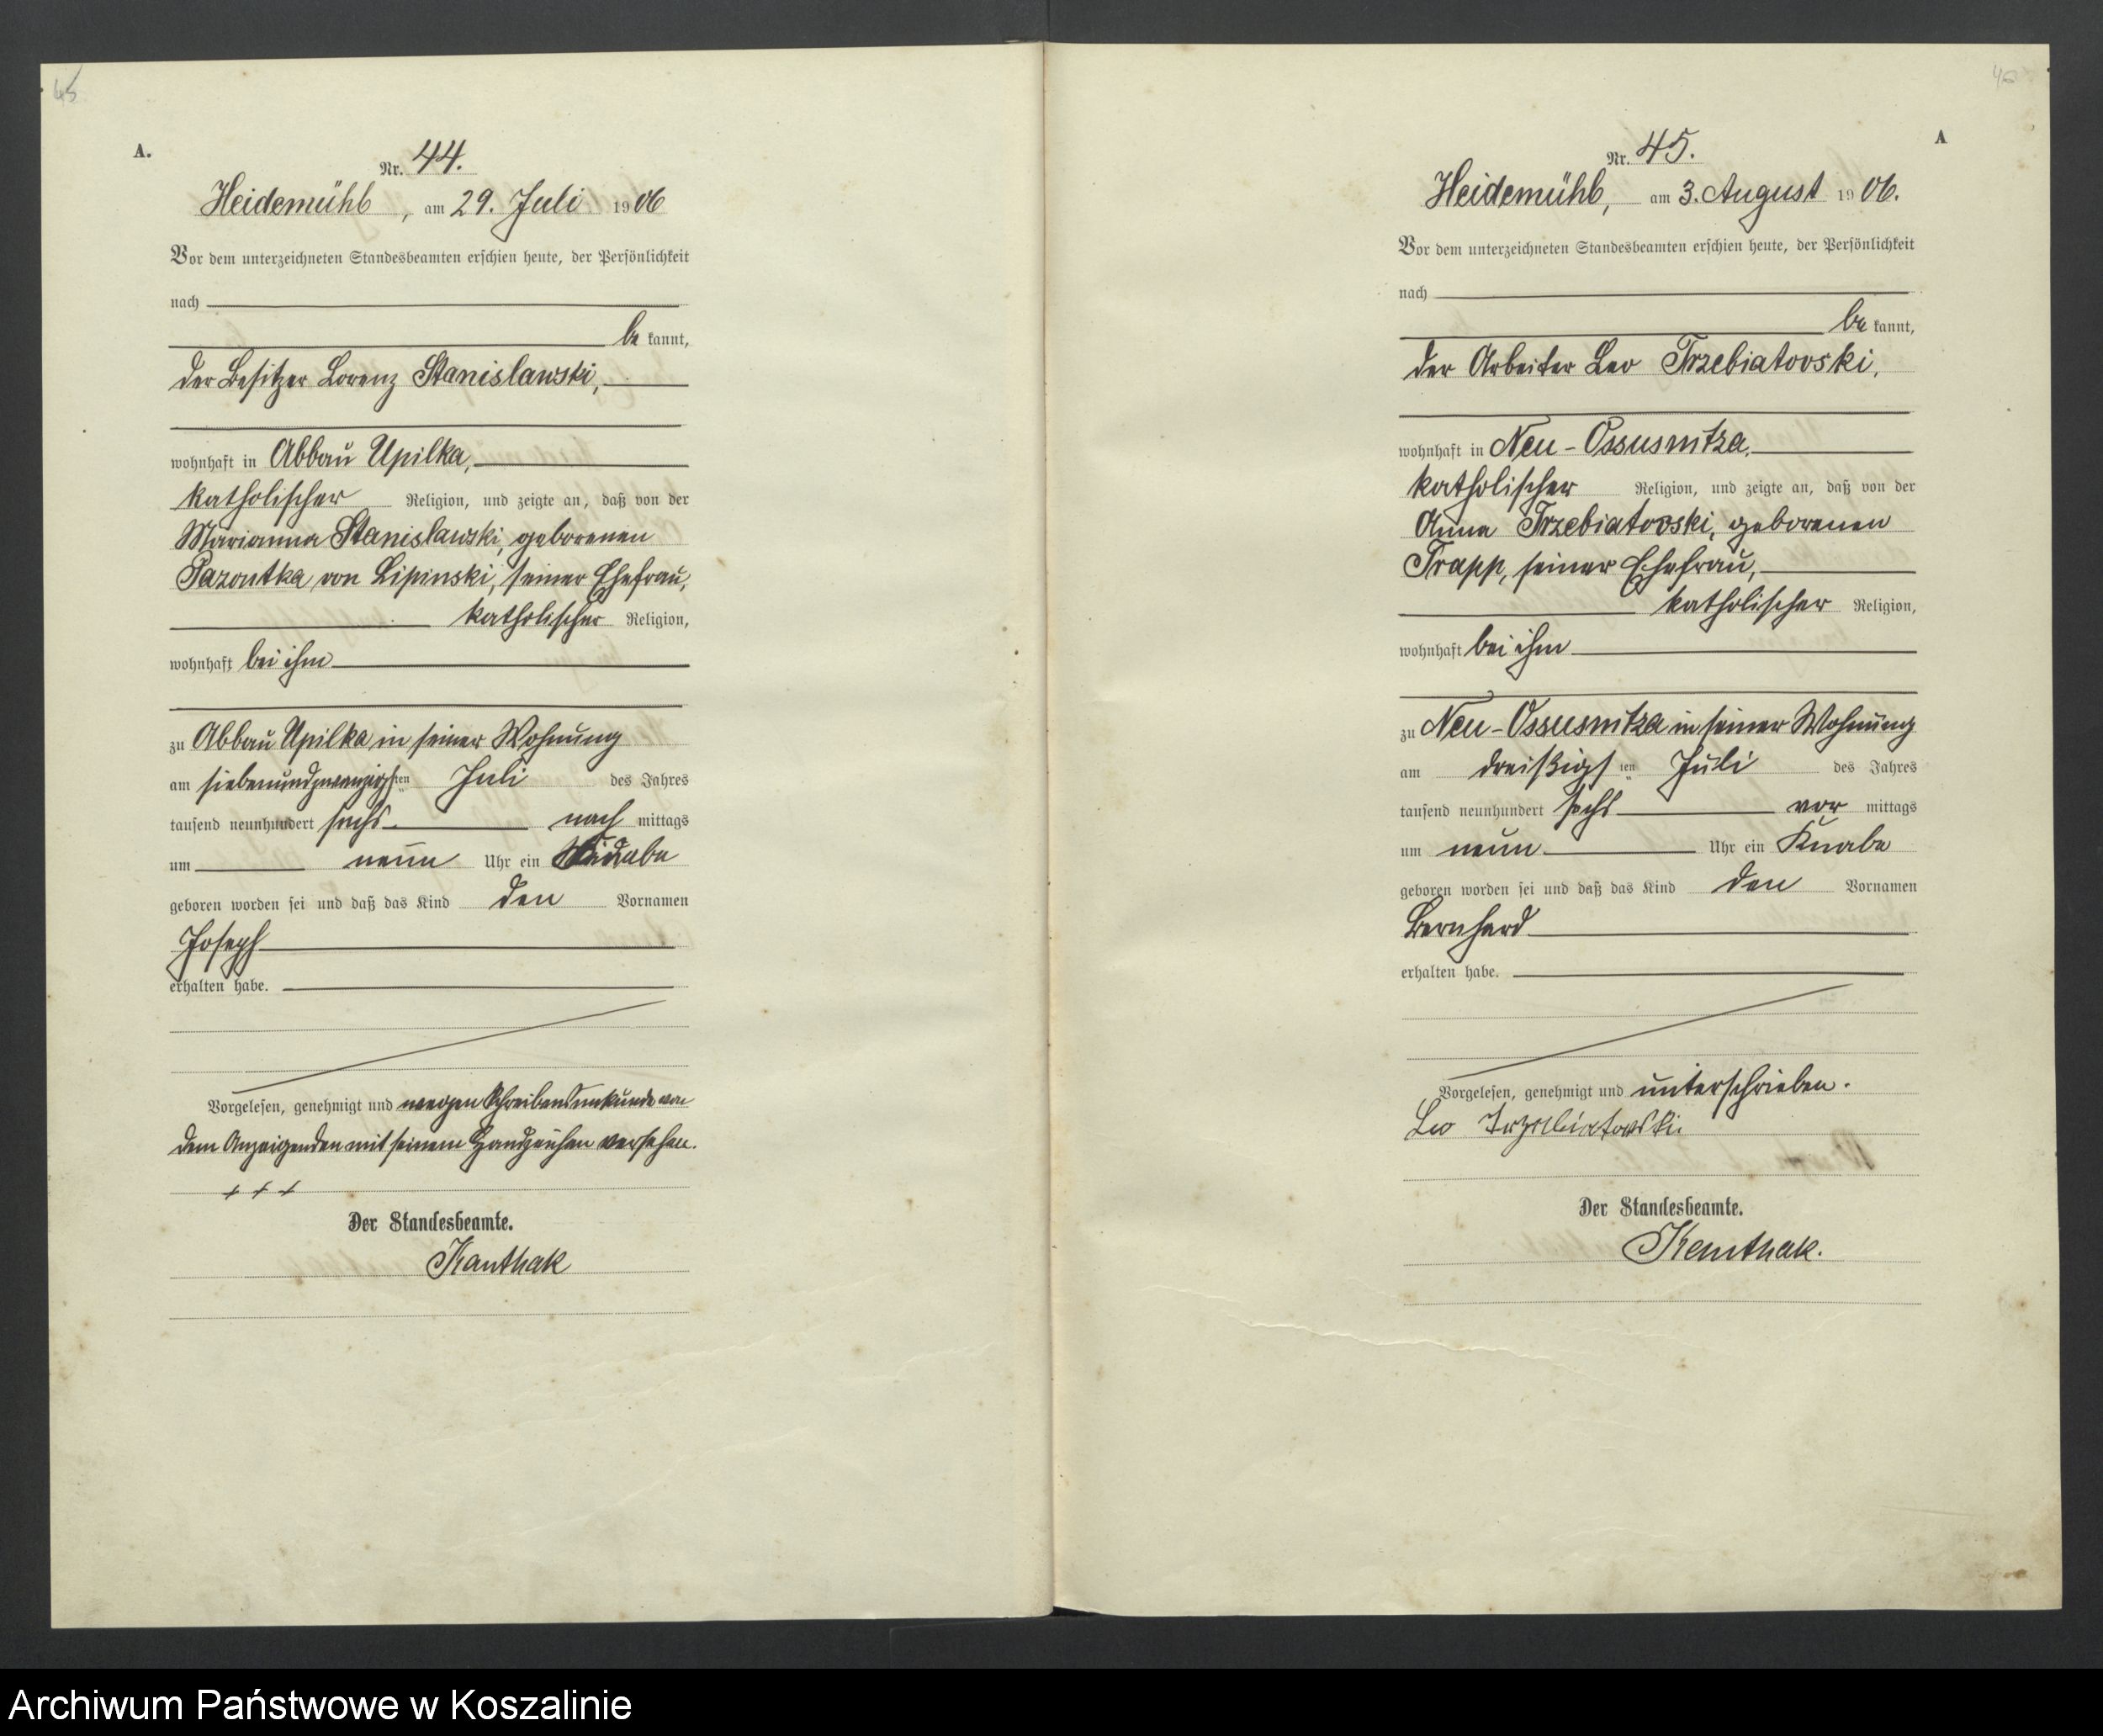 45
A.
Nr. 44.
Heidemühl, am 29. Juli 1906
Vor dem unterzeichneten Standesbeamten erschien heute, der Persönlichkeit
nach
be kannt,
der Besitzer Lorenz Stanislawski,
wohnhaft in Abbau Upilka,
katholischer Religion, und zeigte an, daß von der
Marianna Stanislawski, geborenen
von Lipinski, seiner Ehefrau,
katholischer Religion,
wohnhaft bei ihm
zu Abbau Upilka in seiner Wohnung
am siebenundzwanzigsten Juli des Jahres
tausend neunhundert sechs nach mittags
um neun Uhr ein Knabe
geboren worden sei und daß das Kind den Vornamen
Joseph
erhalten habe.
Vorgelesen, genehmigt und wegen Schreibensunkunde von
dem Anzeigenden mit seinem Handzeichen versehen.
+ + +
Der Standesbeamte.
Kanthak
46
A
Nr. 45.
Heidemühl, am 3. August 1906.
Vor dem unterzeichneten Standesbeamten erschien heute, der Persönlichkeit
nach
be kannt,
der Arbeiter Leo Trzebiatovski,
wohnhaft in Neu-Ossusnitza,
katholischer Religion, und zeigte an, daß von der
Anna Trzebiatovski, geborenen
Trapp, seiner Ehefrau,
katholischer Religion,
wohnhaft bei ihm
zu Neu-Ossusnitza in seiner Wohnung
am dreißigsten Juli des Jahres
tausend neunhundert sechs vor mittags
um neun Uhr ein Knabe
geboren worden sei und daß das Kind den Vornamen
Bernhard
erhalten habe.
Vorgelesen, genehmigt und unterschrieben.
Leo Trzebiatowski
Der Standesbeamte.
Kanthak.
Archiwum Państwowe w Koszalinie